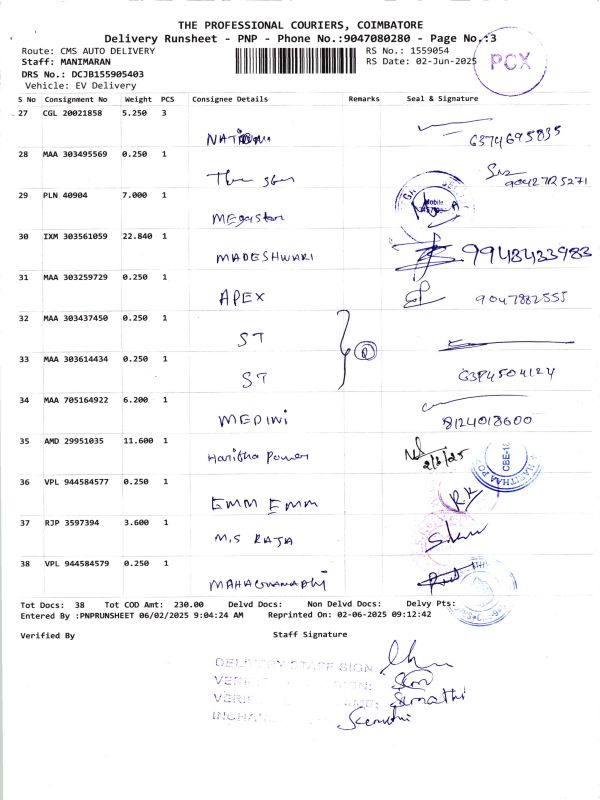 THE PROFESSIONAL COURIERS, COIMBATORE
Delivery Runsheet - PNP - Phone No.:9047080280 - Page No.:3
Route: CMS AUTO DELIVERY
RS No.: 1559054
Staff: MANIMARAN
RS Date: 02-Jun-2025
PCX
DRS No.: DCJB155905403
Vehicle: EV Delivery
S No Consignment No Weight PCS Consignee Details Remarks Seal & Signature
27 CGL 20021858 5.250 3
6374695835
28 MAA 303495569 0.250 1
29 PLN 40904 7.000 1
Megastar
30 IXM 303561059 22.840 1
MADESHWARI 9948433983
31 MAA 303259729 0.250 1
APEX 9047882555
32 MAA 303437450 0.250 1
ST
33 MAA 303614434 0.250 1
ST
34 MAA 705164922 6.200 1
MEDINI 8124018600
35 AMD 29951035 11.600 1
Haritha Power
36 VPL 944584577 0.250 1
EMM EMM RK
37 RJP 3597394 3.600 1
M.S RAJA
38 VPL 944584579 0.250 1
Tot Docs: 38 Tot COD Amt: 230.00 Delvd Docs: Non Delvd Docs: Delvy Pts:
Entered By :PNPRUNSHEET 06/02/2025 9:04:24 AM Reprinted On: 02-06-2025 09:12:42
Verified By Staff Signature
DELIVERY STAFF SIGN